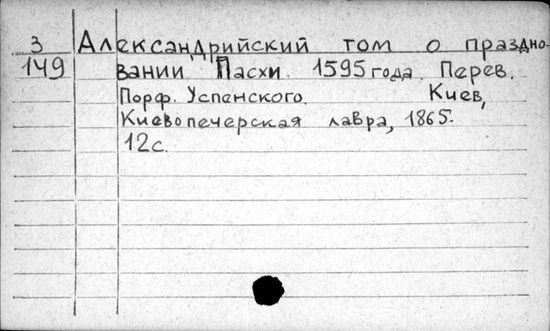 3 Александрийский том о праздно-
149 вании Пасхи 1595 года. Перев.
Порф. Успенского. Киев,
Киевопечерская лавра, 1865.
12 с.